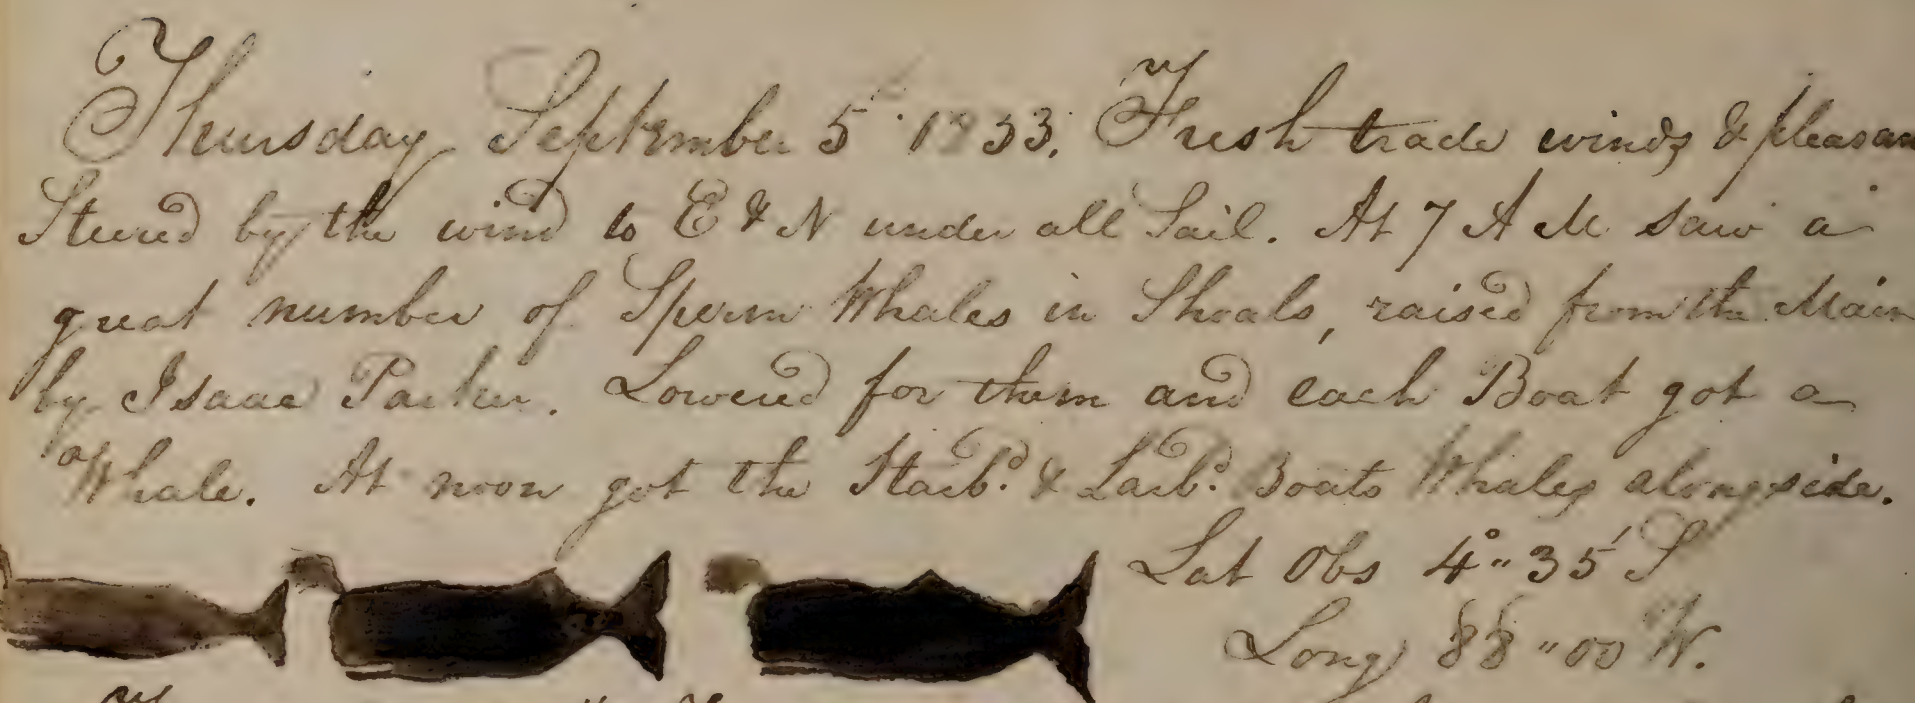 Thursday September 5 1833. Fresh trade winds & pleasan
Steered by the wind to E & N under all Sail. At 7 A M saw a
great number of Sperm Whales in Shoals, raised from the Main
by Isaac Parker. Lowered for them and each Boat got a
Whale. At noon got the Starbd. & Larbd. Boats Whales alongside.
Lat Obs 4°" 35' S
Long 88 " 00 W.